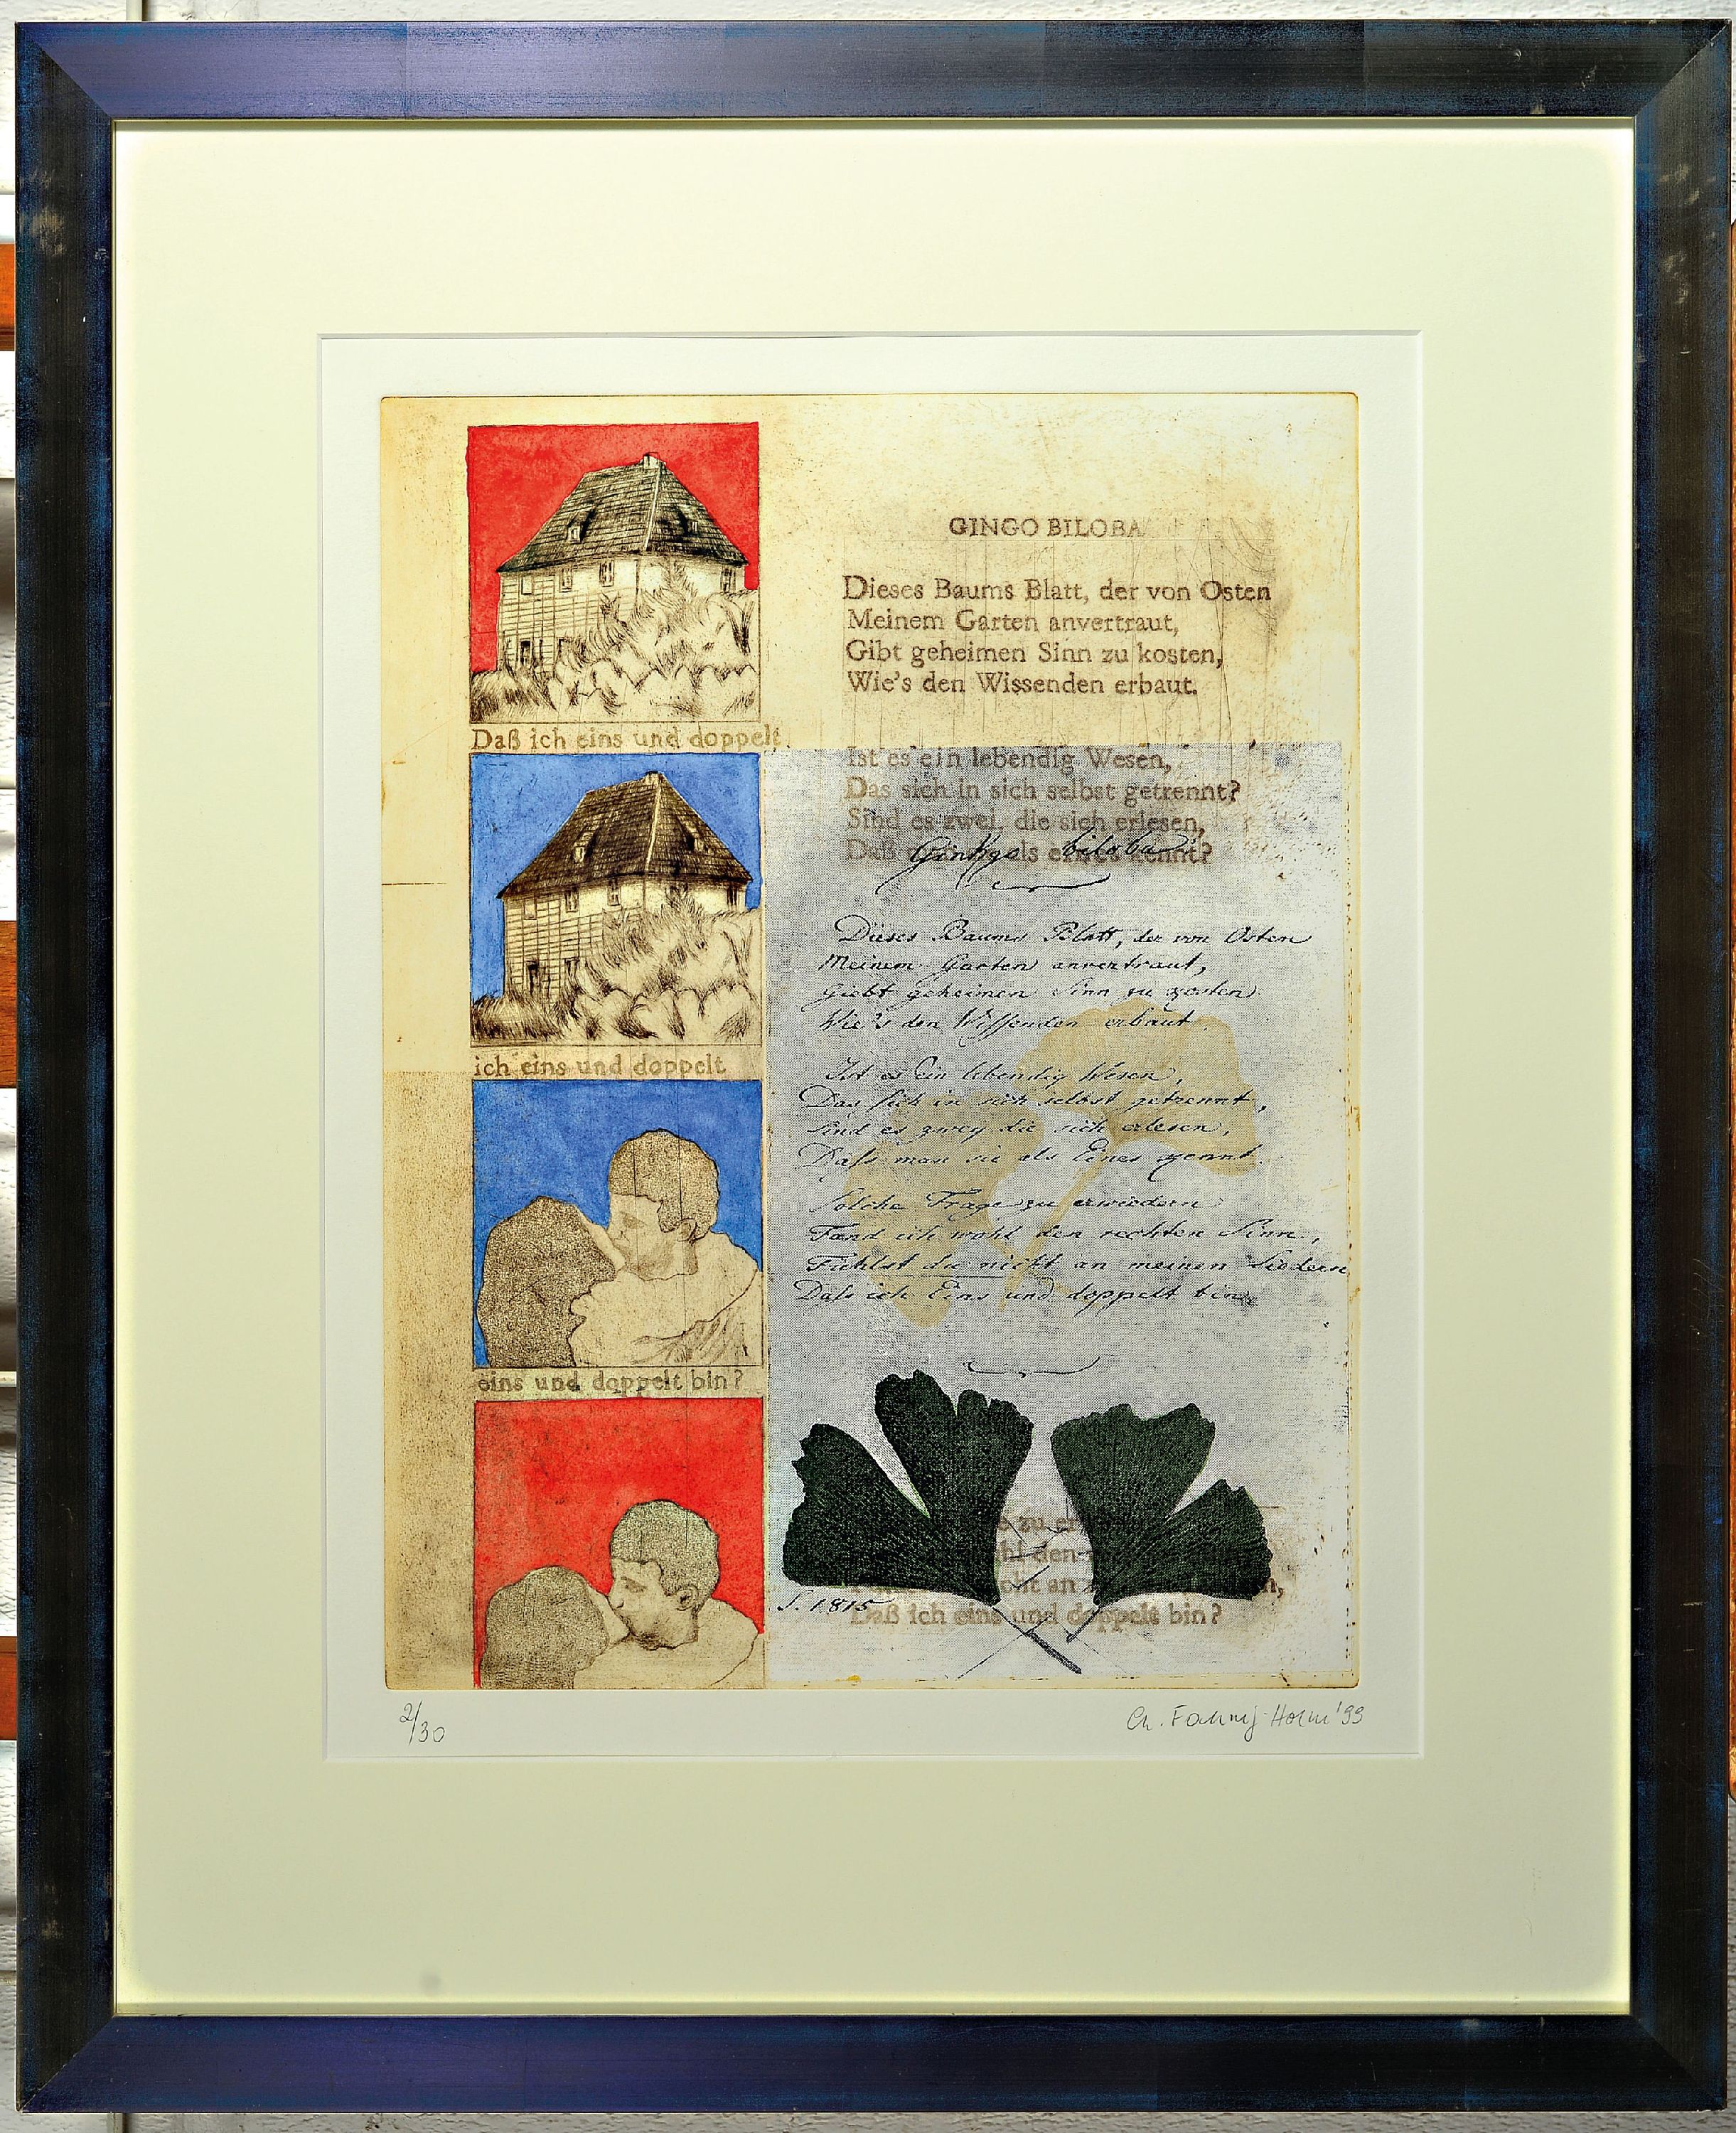 GINGO BILOBA
Dieses Baums Blatt, der von Osten
Meinem Garten anvertraut,
Gibt geheimen Sinn zu kosten,
Wie's den Wissenden erbaut.
Ist es ein lebendig Wesen,
Das sich in sich selbst getrennt?
Sind es zwei, die sich erlesen,
Daß
kennt?
Ginkgo biloba
Dieses Baums Blatt, der von Osten
Meinem Garten anvertraut,
Giebt geheimen Sinn zu kosten
Wie's den Wissenden erbaut
Ist es Ein lebendig Wesen,
Das sich in sich selbst getrennt,
Sind es zwey die sich erlesen,
Dass man sie als Eines kennt.
Solche Frage zu erwiedern
Fand ich wohl den rechten Sinn,
Fühlst du nicht an meinen Liedern
Dass ich Eins und doppelt bin
zu
den
an
S. 1815
Daß ich eins und doppelt bin?
Daß ich eins und doppelt
ich eins und doppelt
eins und doppelt bin?
2/30
Ch. '99